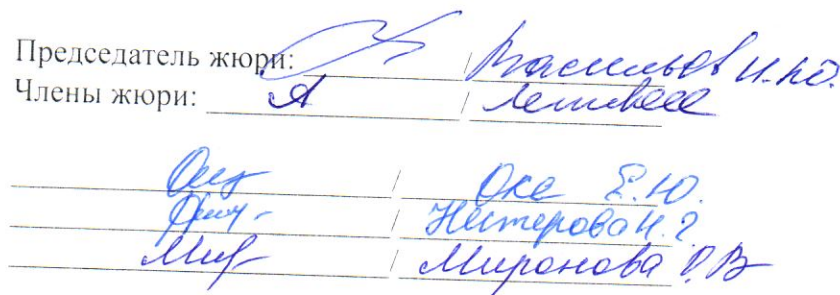 Председатель жюри: / Васильев И.Ю.
Члены жюри: /
/ Оке Е.Ю.
/ Нестерова Н.Г.
/ Миронова О.В.